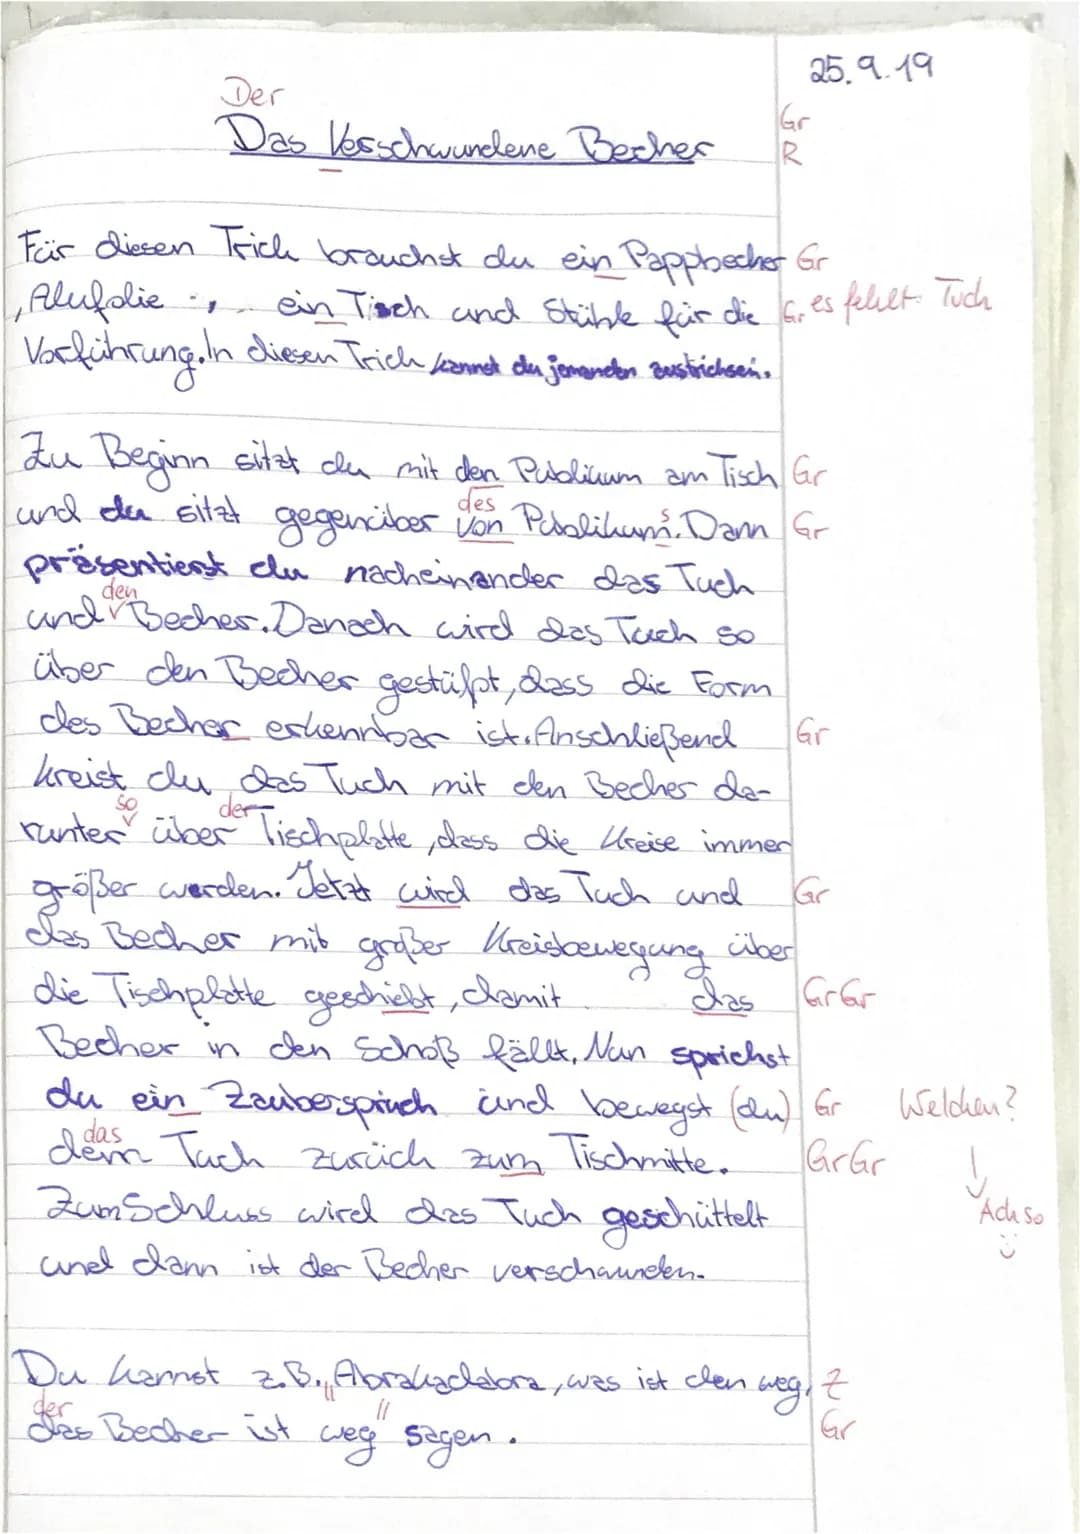 25.9.19
Der
Gr
Das Verschwundene Becher
R
Für diesen Trick brauchst du ein Pappbecher Gr
, Alufolie , ein Tisch und Stühle für die G. es fehlt: Tuch
Vorführung. In diesen Trick kannst du jemanden austricksen.
Zu Beginn sitzt du mit den Publikum am Tisch Gr
des s
und du sitzt gegenüber von Publikum. Dann Gr
präsentierst du nacheinander das Tuch
den
und Becher. Danach wird das Tuch so
über den Becher gestülpt, dass die Form
des Becher erkennbar ist. Anschließend Gr
kreist du das Tuch mit den Becher da-
so der
runter über Tischplatte, dass die Kreise immer
größer werden. Jetzt wird das Tuch und Gr
das Becher mit großer Kreisbewegung über
die Tischplatte geschiebt, damit das Gr Gr
Becher in den Schoß fällt. Nun sprichst
du ein Zauberspruch und bewegst (du) Gr Welchen?
das
dem Tuch zurück zum Tischmitte. Gr Gr
Zum Schluss wird das Tuch geschüttelt Ach so
und dann ist der Becher verschwunden.
Du kannst z.B. „Abrakadabra, was ist den weg, Z
der "
das Becher ist weg sagen. Gr